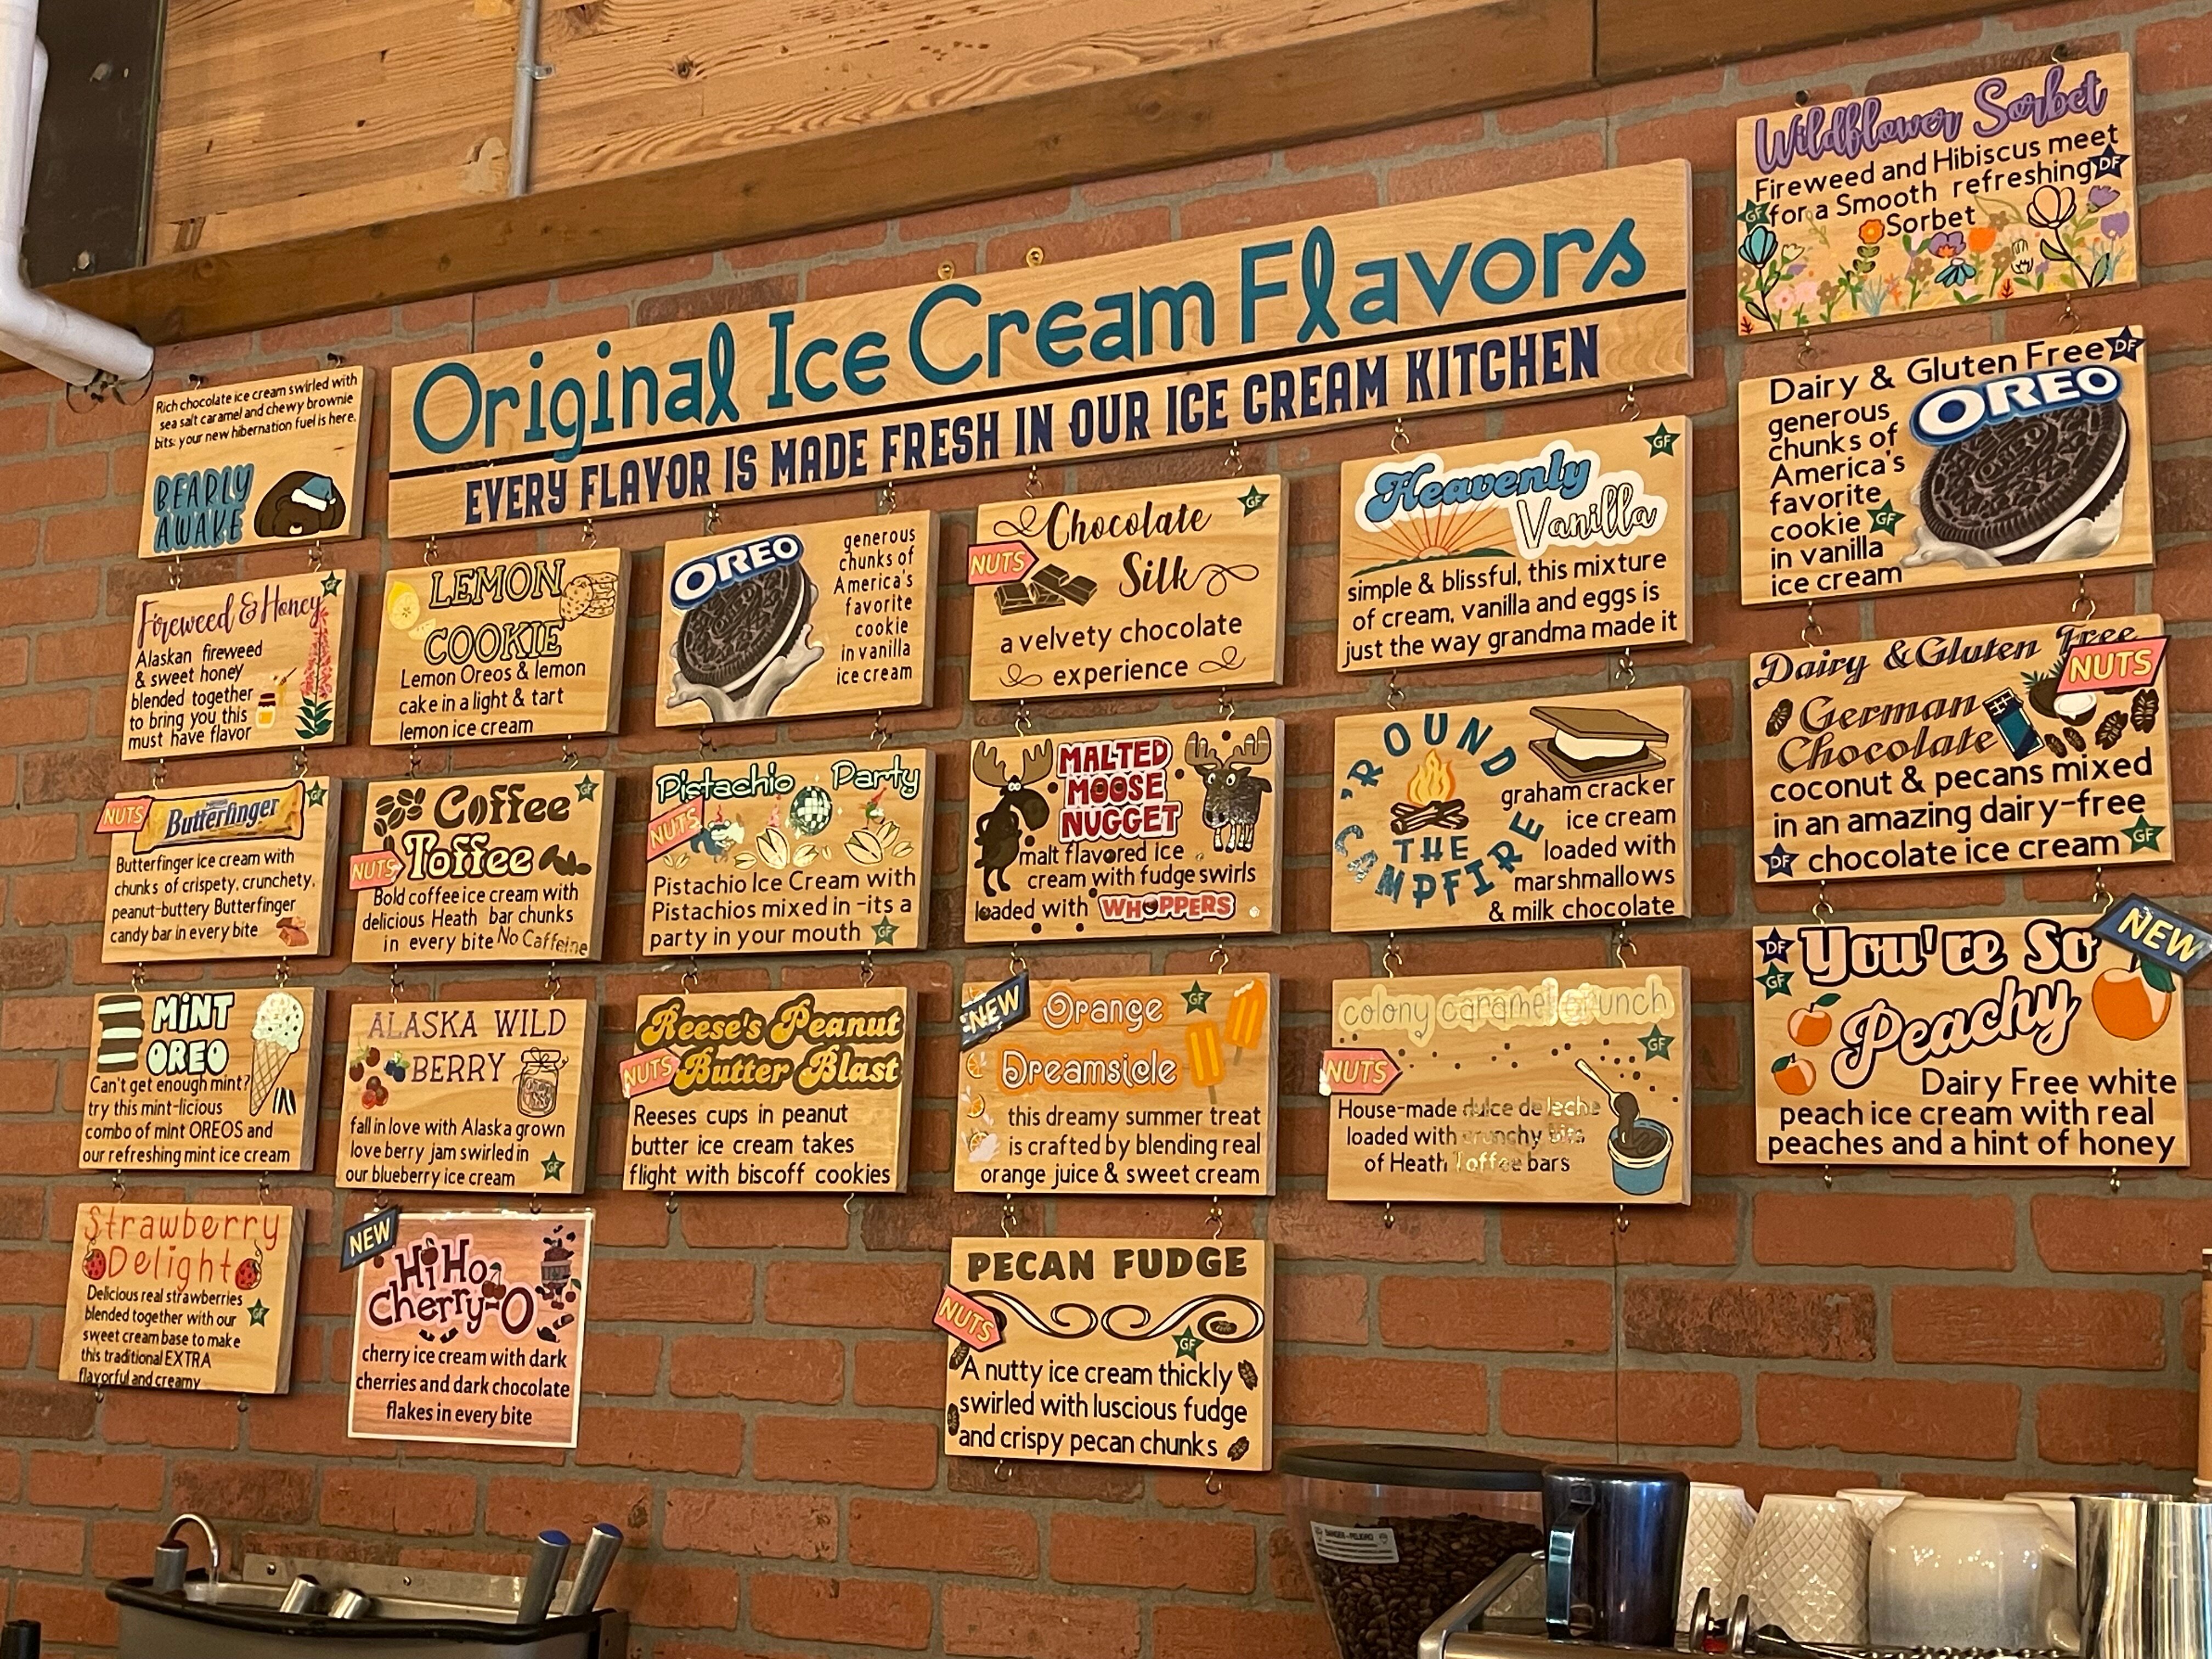 Original Ice Cream Flavors
EVERY FLAVOR IS MADE FRESH IN OUR ICE CREAM KITCHEN
Rich chocolate ice cream swirled with
sea salt caramel and chewy brownie
bits: your new hibernation fuel is here.
BEARLY
AWAKE
Fireweed & Honey
GF
Alaskan fireweed
& sweet honey
blended together
to bring you this
must have flavor
NUTS
Butterfinger
GF
Butterfinger ice cream with
chunks of crispety, crunchety,
peanut-buttery Butterfinger
candy bar in every bite
MiNT
OREO
Can't get enough mint?
try this mint-licious
combo of mint OREOS and
our refreshing mint ice cream
Strawberry
Delight
Delicious real strawberries
blended together with our
GF
sweet cream base to make
this traditional EXTRA
flavorful and creamy
LEMON
COOKIE
Lemon Oreos & lemon
cake in a light & tart
lemon ice cream
Coffee
GF
NUTS
Toffee
Bold coffee ice cream with
delicious Heath bar chunks
in every bite No Caffeine
ALASKA WILD
BERRY
fall in love with Alaska grown
love berry jam swirled in
our blueberry ice cream
GF
NEW
Hi Ho
Cherry-O
cherry ice cream with dark
cherries and dark chocolate
flakes in every bite
OREO
generous
chunks of
America's
favorite
cookie
in vanilla
ice cream
Pistachio Party
NUTS
Pistachio Ice Cream with
Pistachios mixed in -its a
party in your mouth
GF
Reese's Peanut
NUTS
Butter Blast
Reeses cups in peanut
butter ice cream takes
flight with biscoff cookies
Chocolate
GF
NUTS
Silk
a velvety chocolate
experience
MALTED
MOOSE
NUGGET
malt flavored ice
cream with fudge swirls
loaded with WHOPPERS
NEW
Orange
GF
Dreamsicle
this dreamy summer treat
is crafted by blending real
orange juice & sweet cream
PECAN FUDGE
NUTS
GF
A nutty ice cream thickly
swirled with luscious fudge
and crispy pecan chunks
Heavenly
GF
Vanilla
simple & blissful, this mixture
of cream, vanilla and eggs is
just the way grandma made it
'ROUND
THE
CAMPFIRE
graham cracker
ice cream
loaded with
marshmallows
& milk chocolate
colony caramel crunch
GF
NUTS
House-made dulce de leche
loaded with crunchy bits
of Heath Toffee bars
Wildflower Sorbet
Fireweed and Hibiscus meet
for a Smooth refreshing
DF
GF
Sorbet
Dairy & Gluten Free
DF
OREO
generous
chunks of
America's
favorite
cookie
GF
in vanilla
ice cream
Dairy & Gluten Free
NUTS
German
Chocolate
coconut & pecans mixed
in an amazing dairy-free
DF
chocolate ice cream
GF
NEW
DF
GF
You're So
Peachy
Dairy Free white
peach ice cream with real
peaches and a hint of honey